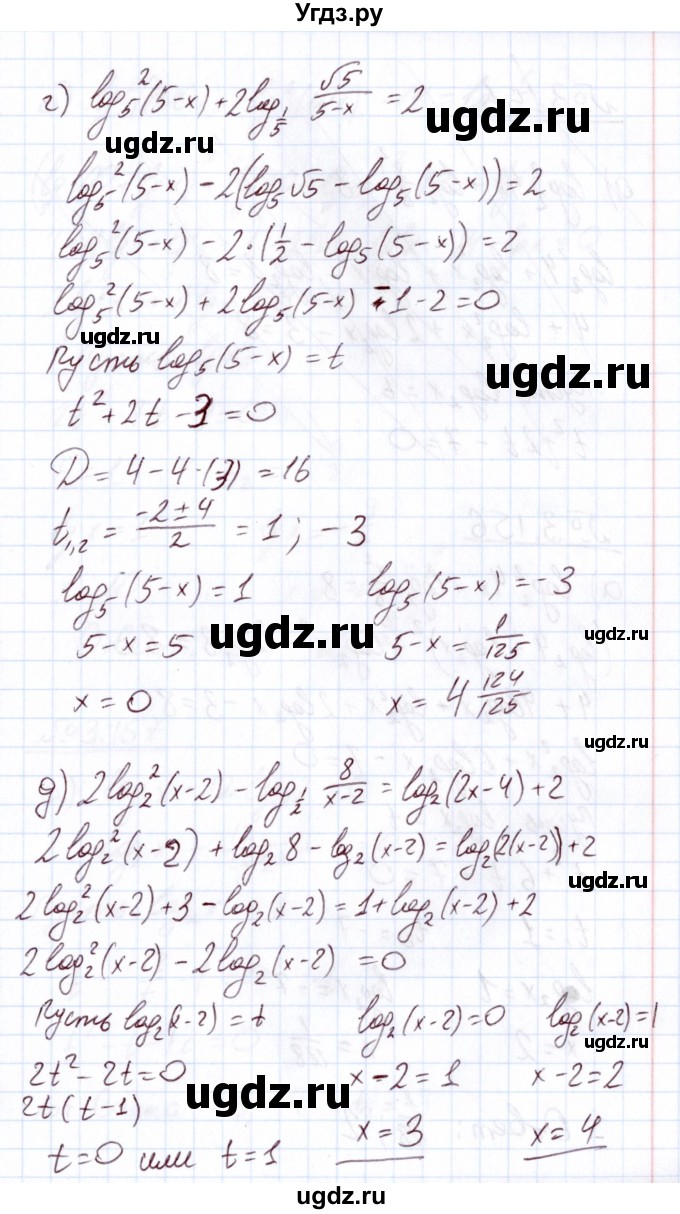 Угдз.ру
г) log₅²(5-x) + 2log_{1/5} √5/(5-x) = 2
ugdz.ru
log₅²(5-x) - 2(log₅√5 - log₅(5-x)) = 2
log₅²(5-x) - 2·(1/2 - log₅(5-x)) = 2
log₅²(5-x) + 2log₅(5-x) - 1 - 2 = 0
ugdz.ru
Пусть log₅(5-x) = t
ugdz.ru
t² + 2t - 3 = 0
D = 4 - 4·(-3) = 16
t₁,₂ = (-2±4)/2 = 1; -3
log₅(5-x) = 1 log₅(5-x) = -3
5-x = 5 5-x = 1/125
ugdz.ru ugdz.ru
x = 0 x = 4 124/125
ugdz.ru
д) 2log₂²(x-2) - log_{1/2} 8/(x-2) = log₂(2x-4) + 2
2log₂²(x-2) + log₂8 - log₂(x-2) = log₂(2(x-2)) + 2
ugdz.ru
2log₂²(x-2) + 3 - log₂(x-2) = 1 + log₂(x-2) + 2
2log₂²(x-2) - 2log₂(x-2) = 0
Пусть log₂(x-2) = t log₂(x-2) = 0 log₂(x-2) = 1
ugdz.ru
2t² - 2t = 0 x-2 = 1 x-2 = 2
ugdz.ru
2t(t-1)
x = 3 x = 4
t = 0 или t = 1
ugdz.ru
ugdz.ru